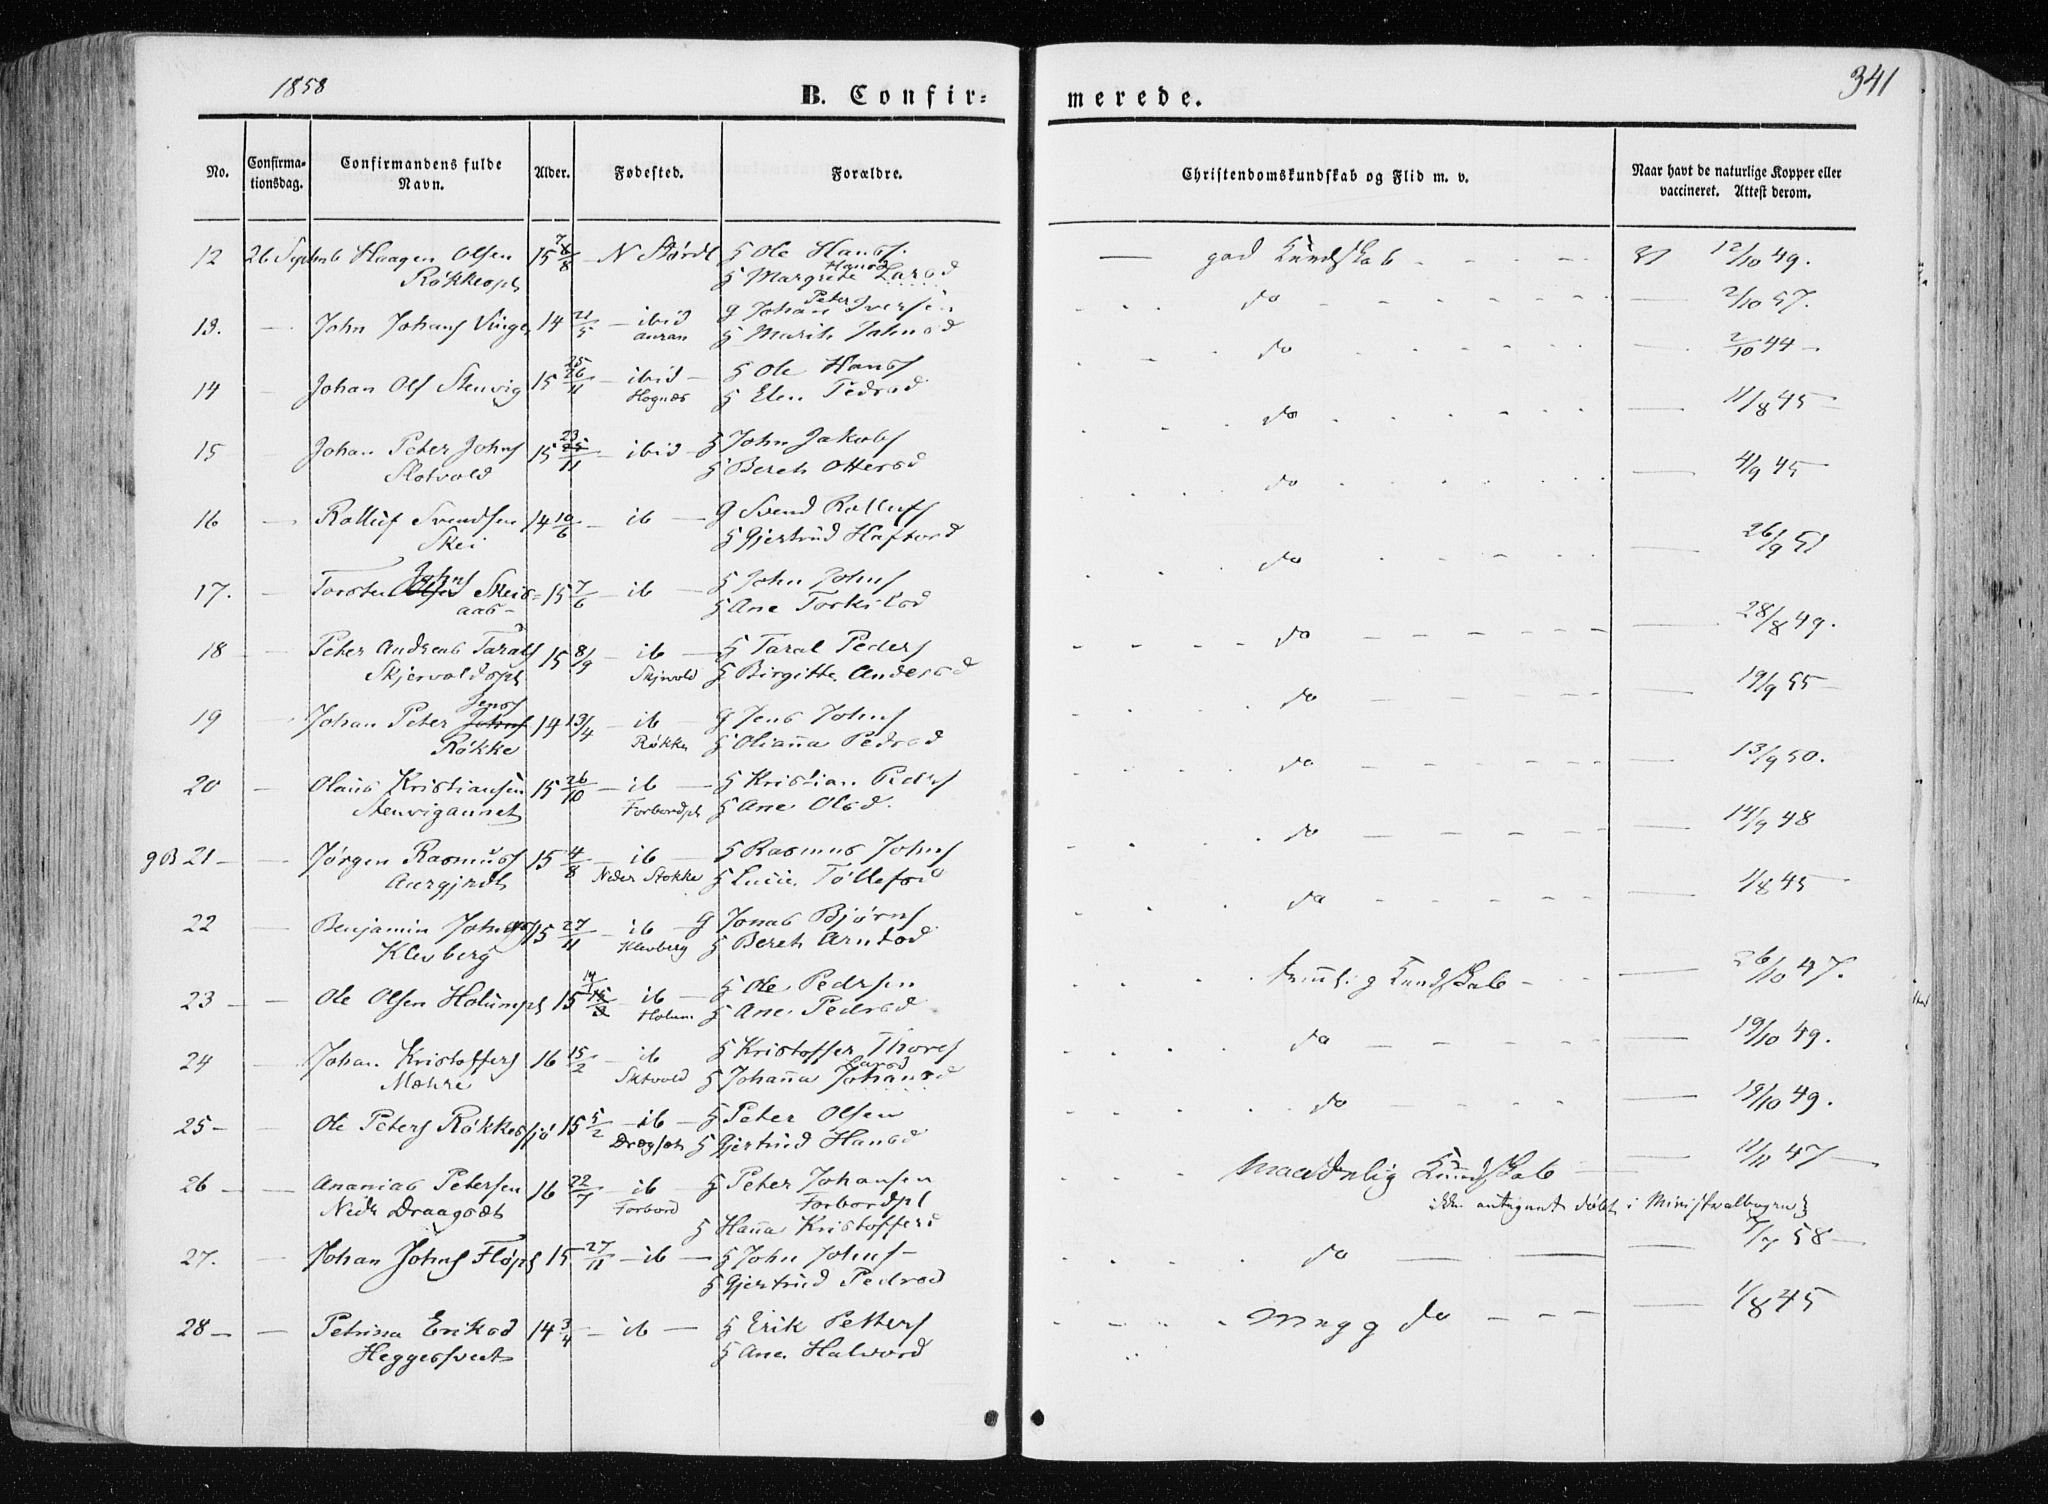 1858
B. Confir=
merede.
341
No.
Confirma-
tionsdag.
Confirmandens fulde
Navn.
Alder.
Fødested.
Forældre.
Christendomskundskab og Flid m. v.
Naar havt de naturlige Kopper eller
vaccineret. Attest derom.
12 26 Haagen Olsen 15 N Størdl G Ole Hans. — god Kundskab - - - - 12/10 49.
Røkkespl G Margrete Larsd
13. — John Johans Vinge 14 21/5 — ibid g Johan Peter Iversen do - - - - 2/10 57.
auran G Marit
14 — Johan Ols Stenvig 15 — ibid — G Ole Hans do - - - - 2/10 44 —
Hognes G Elen Pedrsd
15 Johan Peter Johns 15 — ibid — G John Jakobs do - - - - 11/8 45 —
Slotvold G Bereth Ottersd
16 — Rolluf Svendsen 14 10/6 — ib — g Svend Rollufs do - - - - 4/9 45
Skei G Gjertrud Haftord
17. — Torsten Johns Skeis= 15 7/6 — ib — G John Johns do - - - - 26/9 51
aas — G Ane Torkilsd
18 — Peter Andreas Tarals 15 8/9 — ib — G Taral Peders do - - - - 28/8 49.
Skjervoldspl Skjrvold G Birgitte Andersd
Jens
19 — Johan Peter Johns 14 13/4 — ib — g Jens Johns do - - - - 19/9 55 —
Røkke Røkke G Olianna Pedrsd
20 — Olaus Kristiansen 15 26/10 — ib — G Kristian Pedrs do - - - - 13/9 50.
Stenvigaunet Forbordspl G Ane Olsd.
21 — — Jørgen Rasmus 15 4/8 — ib — G Rasmus Johns do - - - - 14/9 48
Neder Stokke G Lucie Tøllefsd
22 — Benjamin 15 27/11 — ib — g Jonas Bjørns do - - - - 1/8 45 —
Klevberg Klevberg G Bereth Arntsd.
23 — — Ole Olsen Holumspl 15 ib — G Ole Pedrsen Kundskab - - 26/10 47.
Holum G Ane Pedrsd
24 — Johan Kristoffers 16 15/2 — ib G Kristoffer Thores do - - - - 19/10 49.
Mæhre G Johanna Johansd
25 — — Ole Peters Røkkesjø 15 5/2 — ib — G Peter Olsen do - - - - 19/10 49.
Dragset G Gjertrud Hansd
26 — — Ananias Petersen 16 22/7 — ib — G Peter Johansen Maadelig Kundskab — 11/11 47 —
Nedr Draagset Forbord Forbordspl ikke antegnet døbt i Ministerialbogen
G Hanna Kristoffersd
27. — Johan Johns Fløpl 15 27/11 — ib — G John Johns — do — — 7/7 58 —
G Gjertrud Pedrsd
28 — — Petrina Eriksd 14 3/4 — ib — G Erik Petters Meg g do - - - 1/8 45
Heggesvedt G Ane Halvord